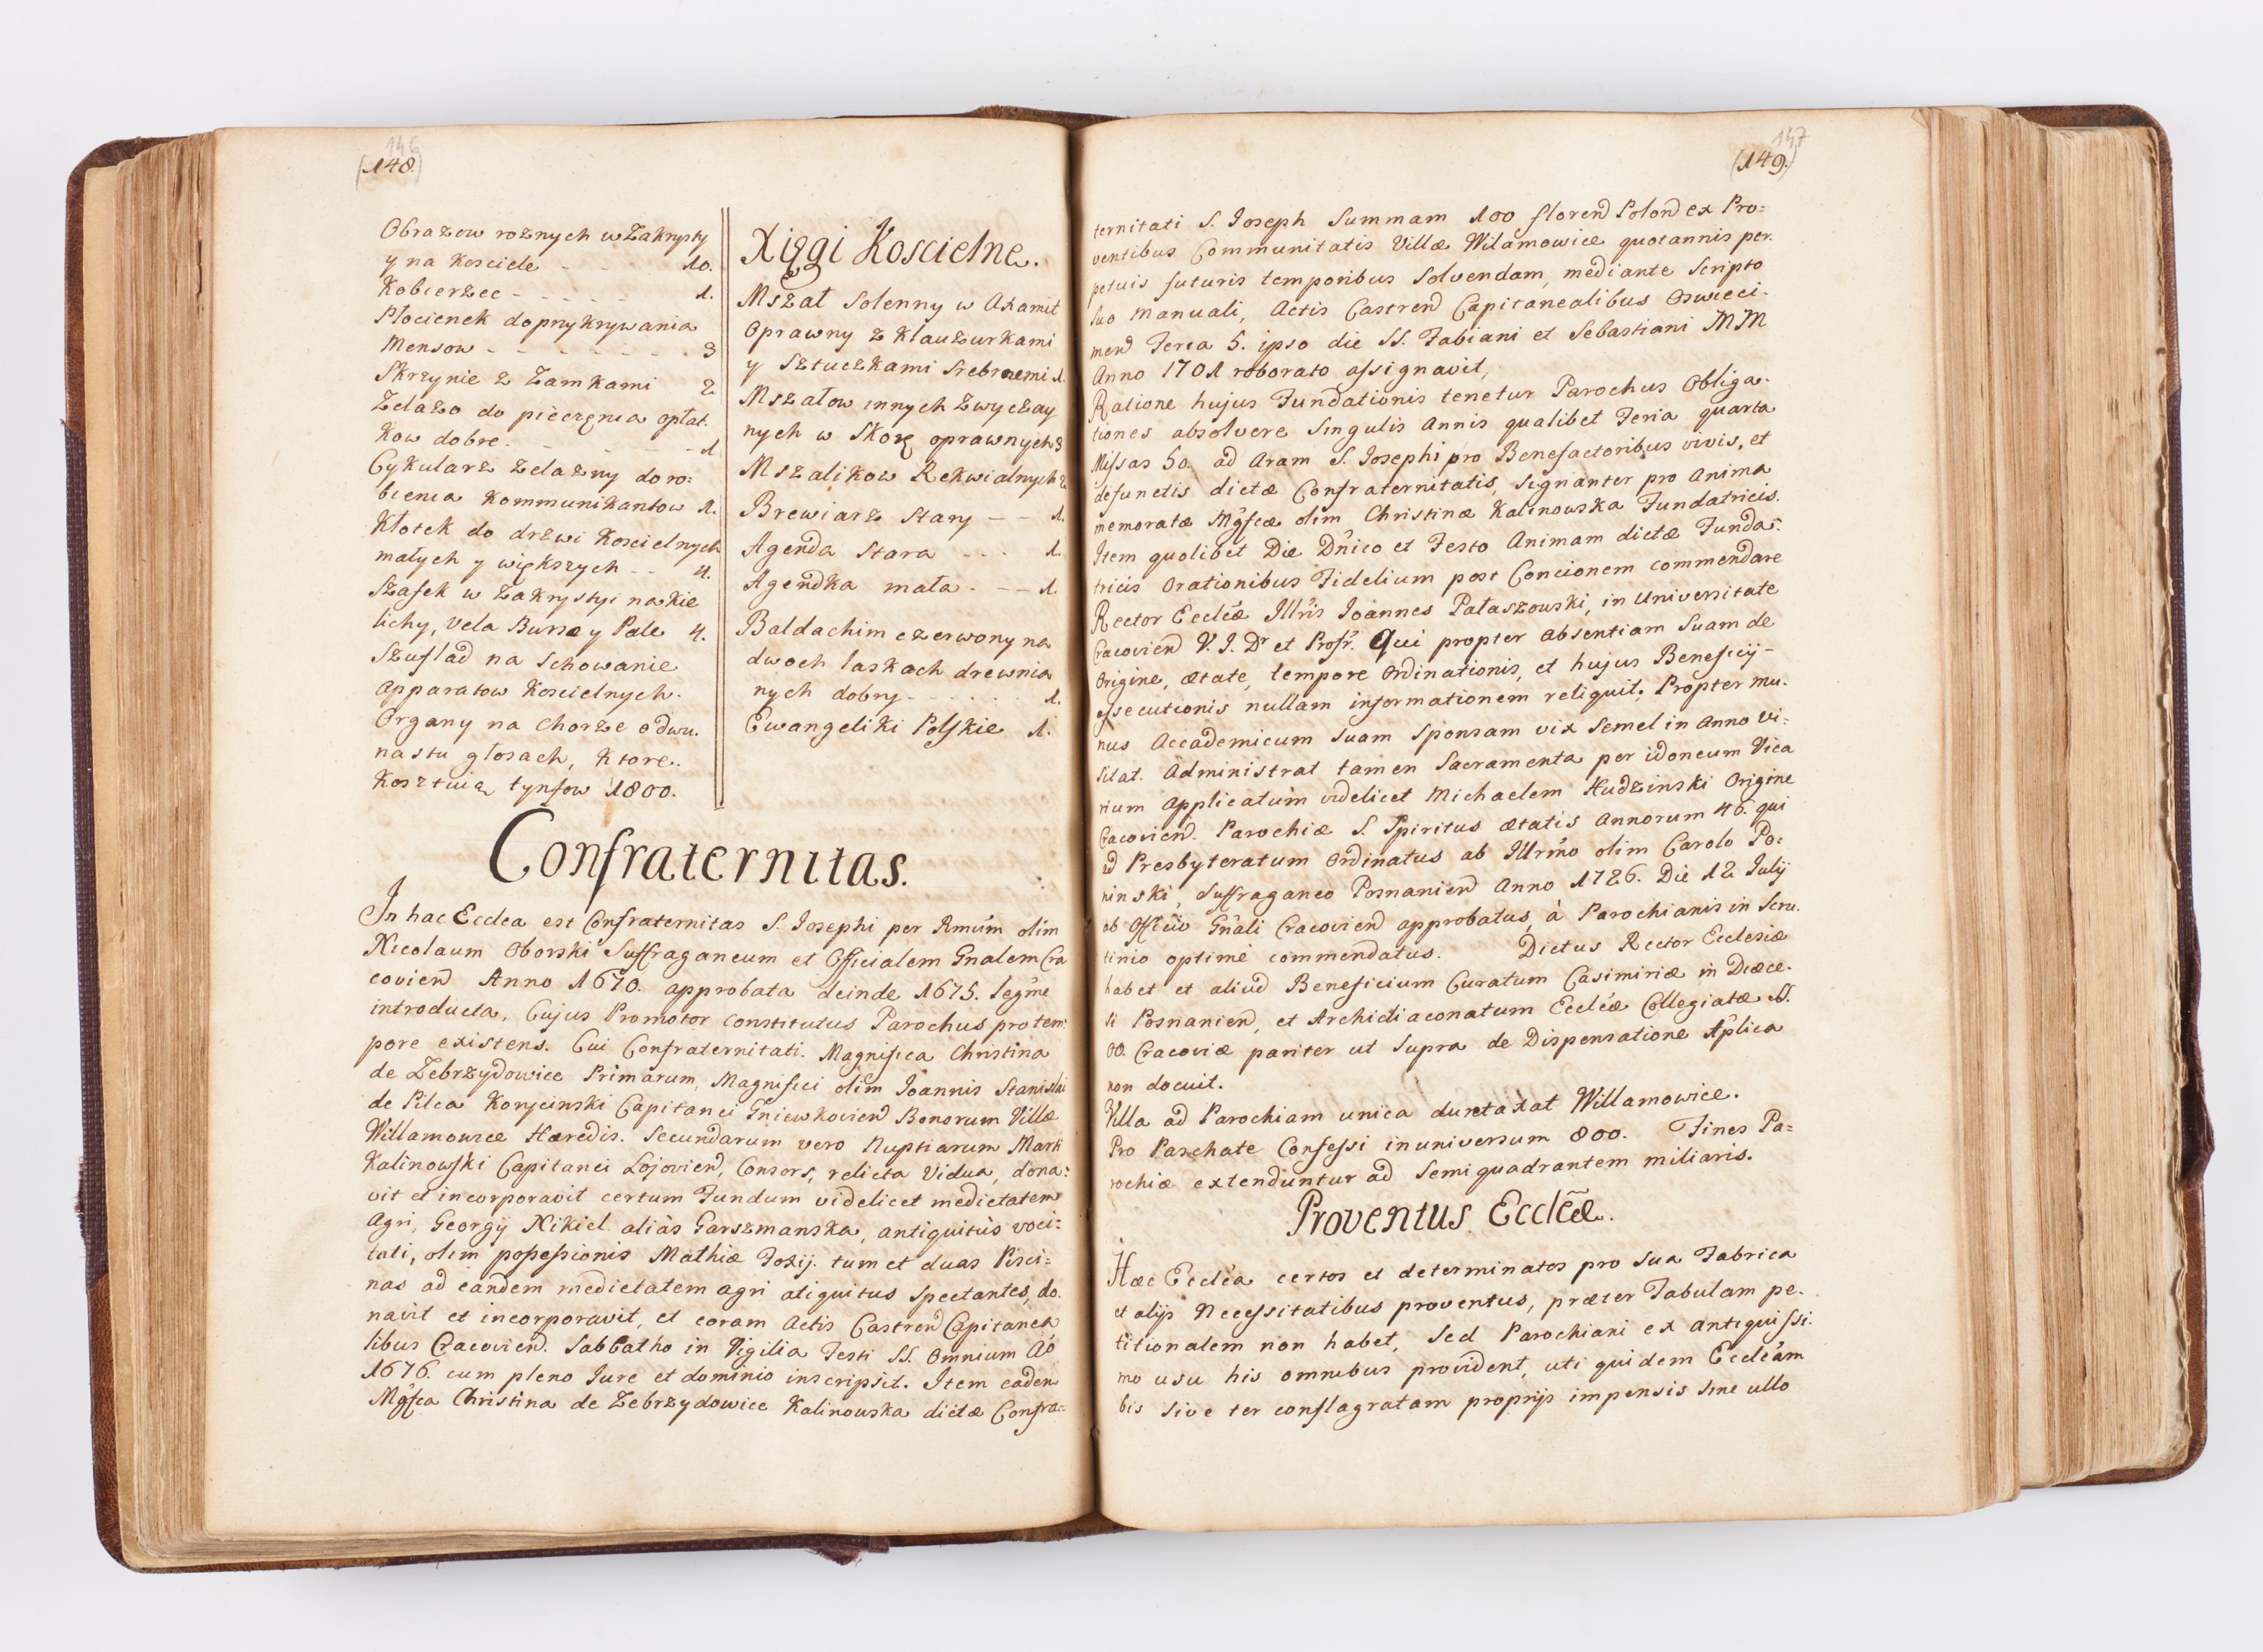 146
(148.)
Obrazow roznych w Zakrysty
y na Kosciele - - 10.
Kobierzec - - - - - 1.
Płocienek do przykrywania
Mensow - - - - - - - 3
Skrzynie z Zamkami 2
Zelazo do pieczęnia opłat.
Kow dobre. - - - 1
Cykularz zelazny do ro:
bienia Kommunikantow 1.
Kłotek do drzwi Koscielnych
małych y większych - - 4.
Szafek w Zakrystyi na Kie
lichy, vela Bursze y Pale 4.
Szuflad na Schowanie
Apparatow Koscielnych.
Organy na Chorze o dwu.
nastu głosach, Ktore.
Kosztuią tynfow 1800.
Xięgi Koscielne.
Mszał Solenny w Axamit
Oprawny z Klauzurkami
y Sztuczkami Srebrnemi 1.
Mszałow innych Zwyczay
nych w Skorę oprawnych 3
Mszalikow Rekwialnych 2
Brewiarz Stary - - 1.
Agenda Stara - - - 1.
Agendka mała - - - 1.
Baldachim czerwony na
dwoch laskach drewnia
nych dobry - - - - - 1.
Ewangeliki Polskie 1.
Confraternitas.
In hac Ecclea est Confraternitas S. Josephi per Rmum olim
Nicolaum Oborski Suffraganeum et Officialem Gnalem Cra
coviend Anno 1670. approbata deinde 1675. legme
introducta, Cujus Promotor constitutus Parochus pro tem:
pore existens. Cui Confraternitati. Magnifica Christina
de Zebrzydowice Primarum, Magnifici olim Joannis Stanislai
de Pilca Koryciński Capitanei Gniewkoviend Bonorum Villæ
Willamowice Hæredis. Secundarum vero Nuptiarum Marti
Kalinowski Capitanei Lojoviend, Consors, relicta Vidua, dona:
vit et incorporavit certum Fundum videlicet medietatem
Agri, Georgij Nikiel aliàs Garszmanska, antiquitùs voci:
tati, olim possessionis Mathiæ Foxij. tum et duas Pisci:
nas ad eandem medietatem agri atiquitus Spectantes, do.
navit et incorporavit, et coram Actis Castrend Capitanea
libus Cracoviend. Sabbatho in Vigilia Festi SS. Omnium Aô
1676. cum pleno Jure et dominio inscripsit. Item eadem
Mgfca Christina de Zebrzydowice Kalinowska dictæ Confra:
147
(149.)
ternitati S. Joseph Summam 100 florend Polond ex Pro:
ventibus Communitatis Villæ Wilamowice quotannis per.
petuis futuris temporibus Solvendam, mediante Scripto
Suo Manuali, Actis Castrend Capitanealibus Oswieci.
mend Feria 5. ipso die SS. Fabiani et Sebastiani MM
Anno 1701 roborato assignavit,
Ratione hujus Fundationis tenetur Parochus Obliga.
tiones absolvere Singulis Annis qualibet Feria quarta
Missas 50. ad Aram S. Josephi pro Benefactoribus vivis, et
defunctis dictæ Confraternitatis, Signanter pro Anima
memoratæ Mgfcæ olim Christinæ Kalinowska Fundatricis.
Item quolibet Die Dnico et Festo Animam dictæ Funda.
tricis Orationibus Fidelium post Concionem commendare
Rector Eccleæ Illris Joannes Pałaszowski, in Universitate
Cracoviend V. J. Dr et Profr. Qui propter absentiam Suam de
Origine, ætate, tempore Ordinationis, et hujus Beneficij-
Assecutionis nullam informationem reliquit, Propter mu.
nus Accademicum Suam Sponsam vix Semel in Anno vi:
sitat. Administrat tamen Sacramenta per idoneum Vica
rium Applicatum videlicet Michaelem Hudzinski Origine
Cracoviend. Parochiæ S. Spiritus ætatis Annorum 46. qui
ad Presbyteratum Ordinatus ab Illrmo olim Carolo Po:
ninski, Suffraganeo Posnaniend Anno 1726. Die 12 Julij
ab Officio Gnali Cracoviend approbatus, à Parochianis in Scru.
tinio optimè commendatus. Dictus Rector Ecclesiæ
habet et aliud Beneficium Curatum Casimiriæ in Diœce.
si Posnaniend, et Archidiaconatum Eccleæ Collegiatæ SS.
OO. Cracoviæ pariter ut Supra de Dispensatione Aplica
non docuit.
Villa ad Parochiam unica duntaxat Willamowice.
Pro Paschate Confessi in universum 800. Fines Pa=
rochiæ extenduntur ad Semiquadrantem miliaris.
Proventus Eccleæ.
Hæc Ecclea certos et determinatos pro Sua Fabrica
et alijs Necessitatibus proventus, præter Tabulam pe.
titionalem non habet, Sed Parochiani ex antiquissi.
mo usu his omnibus provident, uti quidem Eccleam
bis Sive ter conflagratam proprijs impensis Sine ullo